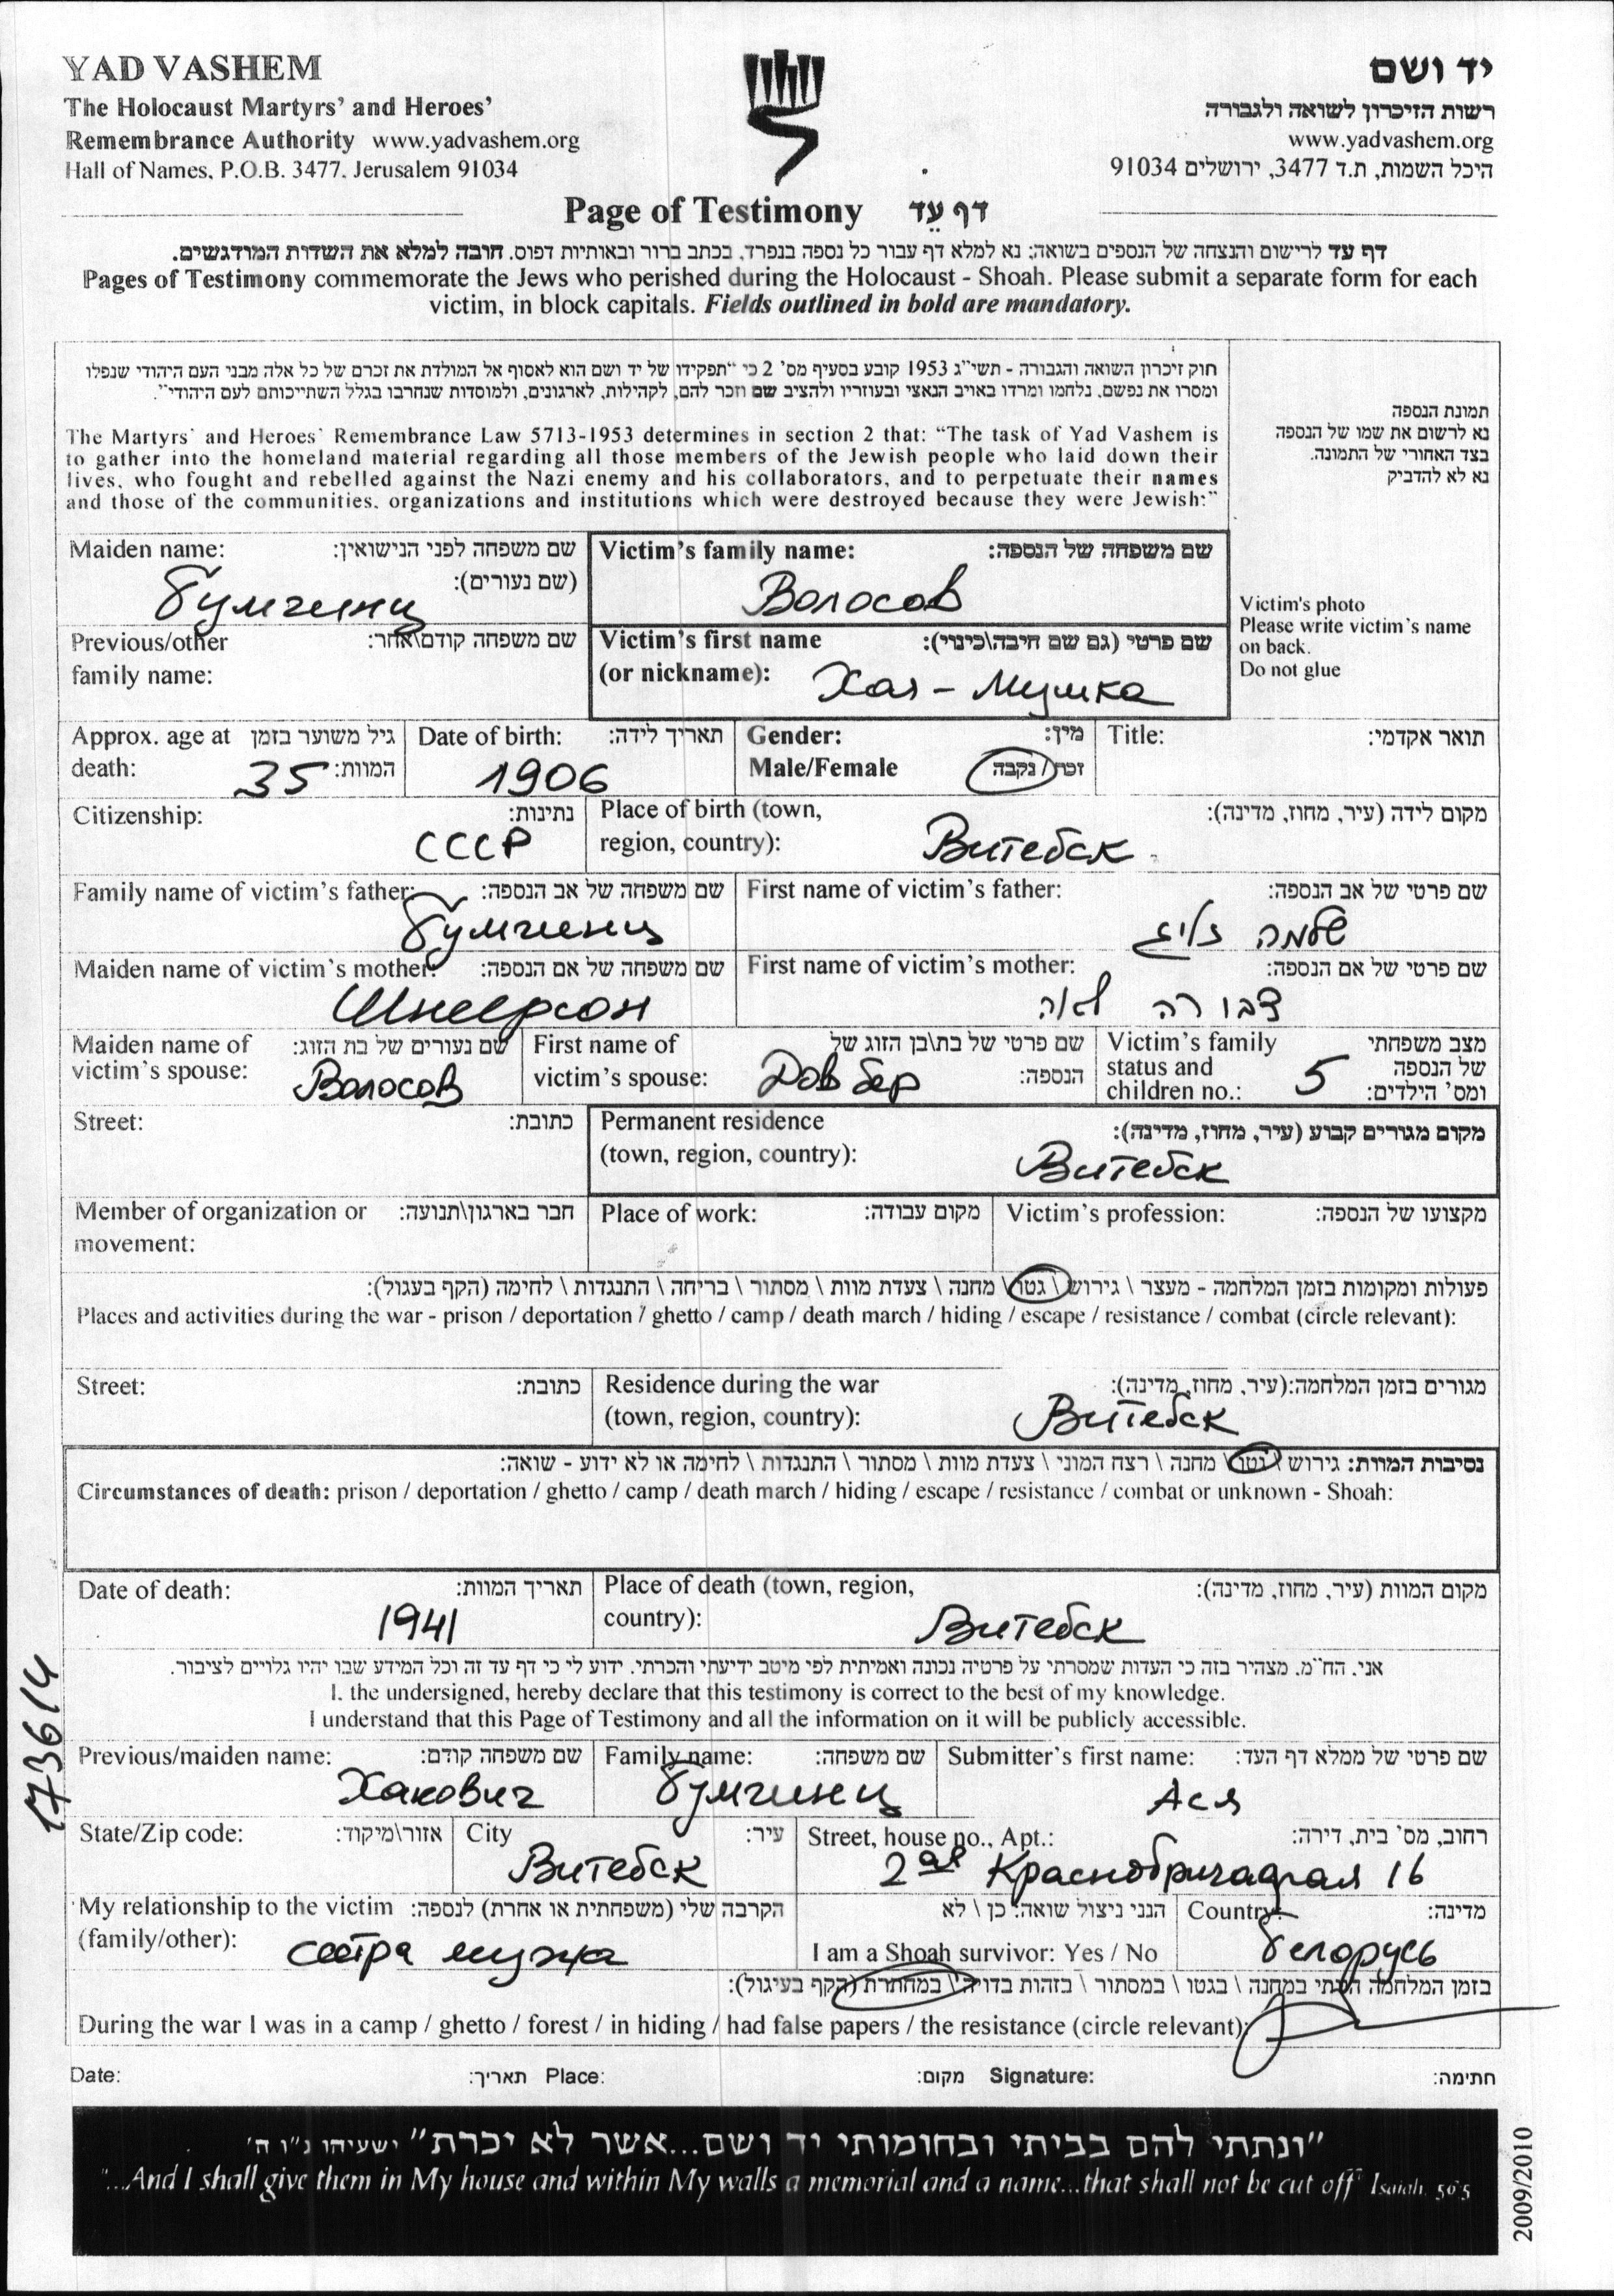 YAD VASHEM
The Holocaust Martyrs' and Heroes'
Remembrance Authority www.yadvashem.org
Hall of Names, P.O.B. 3477, Jerusalem 91034
יד ושם
רשות הזיכרון לשואה ולגבורה
www.yadvashem.org
היכל השמות, ת.ד 3477, ירושלים 91034
Page of Testimony דף עֵד
דף עד לרישום והנצחה של הנספים בשואה; נא למלא דף עבור כל נספה בנפרד, בכתב ברור ובאותיות דפוס. חובה למלא את השדות המודגשים.
Pages of Testimony commemorate the Jews who perished during the Holocaust - Shoah. Please submit a separate form for each
victim, in block capitals. Fields outlined in bold are mandatory.
חוק זיכרון השואה והגבורה - תשי"ג 1953 קובע בסעיף מס' 2 כי "תפקידו של יד ושם הוא לאסוף אל המולדת את זכרם של כל אלה מבני העם היהודי שנפלו
ומסרו את נפשם, נלחמו ומרדו באויב הנאצי ובעוזריו ולהציב שם וזכר להם, לקהילות, לארגונים, ולמוסדות שנחרבו בגלל השתייכותם לעם היהודי".
The Martyrs' and Heroes' Remembrance Law 5713-1953 determines in section 2 that: "The task of Yad Vashem is
to gather into the homeland material regarding all those members of the Jewish people who laid down their
lives, who fought and rebelled against the Nazi enemy and his collaborators, and to perpetuate their names
and those of the communities, organizations and institutions which were destroyed because they were Jewish:"
תמונת הנספה
נא לרשום את שמו של הנספה
בצד האחורי של התמונה.
נא לא להדביק
Victim's photo
Please write victim's name
on back.
Do not glue
Maiden name: שם משפחה לפני הנישואין:
(שם נעורים):
Гумгинц
Victim's family name: שם משפחה של הנספה:
Волосов
Previous/other שם משפחה קודם\אחר:
family name:
Victim's first name שם פרטי (גם שם חיבה\כינוי):
(or nickname): Хая - Мушка
Approx. age at גיל משוער בזמן
death: 35 המוות:
Date of birth: תאריך לידה:
1906
Gender: מין:
Male/Female זכר / נקבה
Title: תואר אקדמי:
Citizenship: נתינות:
СССР
Place of birth (town, מקום לידה (עיר, מחוז, מדינה):
region, country): Витебск
Family name of victim's father: שם משפחה של אב הנספה:
Гумгинц
First name of victim's father: שם פרטי של אב הנספה:
שלמה זליג
Maiden name of victim's mother: שם משפחה של אם הנספה:
Шнеерсон
First name of victim's mother: שם פרטי של אם הנספה:
דבורה לאה
Maiden name of שם נעורים של בת הזוג:
victim's spouse: Волосов
First name of שם פרטי של בת\בן הזוג של
victim's spouse: Довбер הנספה:
Victim's family מצב משפחתי
status and של הנספה
children no.: 5 ומס' הילדים:
Street: כתובת:
Permanent residence מקום מגורים קבוע (עיר, מחוז, מדינה):
(town, region, country): Витебск
Member of organization or חבר בארגון\תנועה:
movement:
Place of work: מקום עבודה:
Victim's profession: מקצועו של הנספה:
פעולות ומקומות בזמן המלחמה - מעצר \ גירוש \ גטו \ מחנה \ צעדת מוות \ מסתור \ בריחה \ התנגדות \ לחימה (הקף בעגול):
Places and activities during the war - prison / deportation / ghetto / camp / death march / hiding / escape / resistance / combat (circle relevant):
Street: כתובת:
Residence during the war מגורים בזמן המלחמה:(עיר, מחוז, מדינה):
(town, region, country): Витебск
נסיבות המוות: גירוש \ גטו \ מחנה \ רצח המוני \ צעדת מוות \ מסתור \ התנגדות \ לחימה או לא ידוע - שואה:
Circumstances of death: prison / deportation / ghetto / camp / death march / hiding / escape / resistance / combat or unknown - Shoah:
Date of death: תאריך המוות:
1941
Place of death (town, region, מקום המוות (עיר, מחוז, מדינה):
country): Витебск
אני, הח"מ, מצהיר בזה כי העדות שמסרתי על פרטיה נכונה ואמיתית לפי מיטב ידיעתי והכרתי. ידוע לי כי דף עד זה וכל המידע שבו יהיו גלויים לציבור.
I, the undersigned, hereby declare that this testimony is correct to the best of my knowledge.
I understand that this Page of Testimony and all the information on it will be publicly accessible.
Previous/maiden name: שם משפחה קודם:
Хакович
Family name: שם משפחה:
Гумгинц
Submitter's first name: שם פרטי של ממלא דף העד:
Ася
State/Zip code: אזור\מיקוד:
City עיר:
Витебск
Street, house no., Apt.: רחוב, מס' בית, דירה:
2ая Краснобригадная 16
My relationship to the victim הקרבה שלי (משפחתית או אחרת) לנספה:
(family/other): сестра мужа
הנני ניצול שואה: כן \ לא
I am a Shoah survivor: Yes / No
Country: מדינה:
Белорусь
בזמן המלחמה הייתי במחנה \ בגטו \ במסתור \ בזהות בדויה \ במחתרת (הקף בעיגול):
During the war I was in a camp / ghetto / forest / in hiding / had false papers / the resistance (circle relevant):
Date: תאריך: Place: מקום: Signature: חתימה:
"ונתתי להם בביתי ובחומותי יד ושם...אשר לא יכרת" ישעיהו נ"ו ה'
"...And I shall give them in My house and within My walls a memorial and a name...that shall not be cut off" Isaiah, 56:5
173614
2009/2010